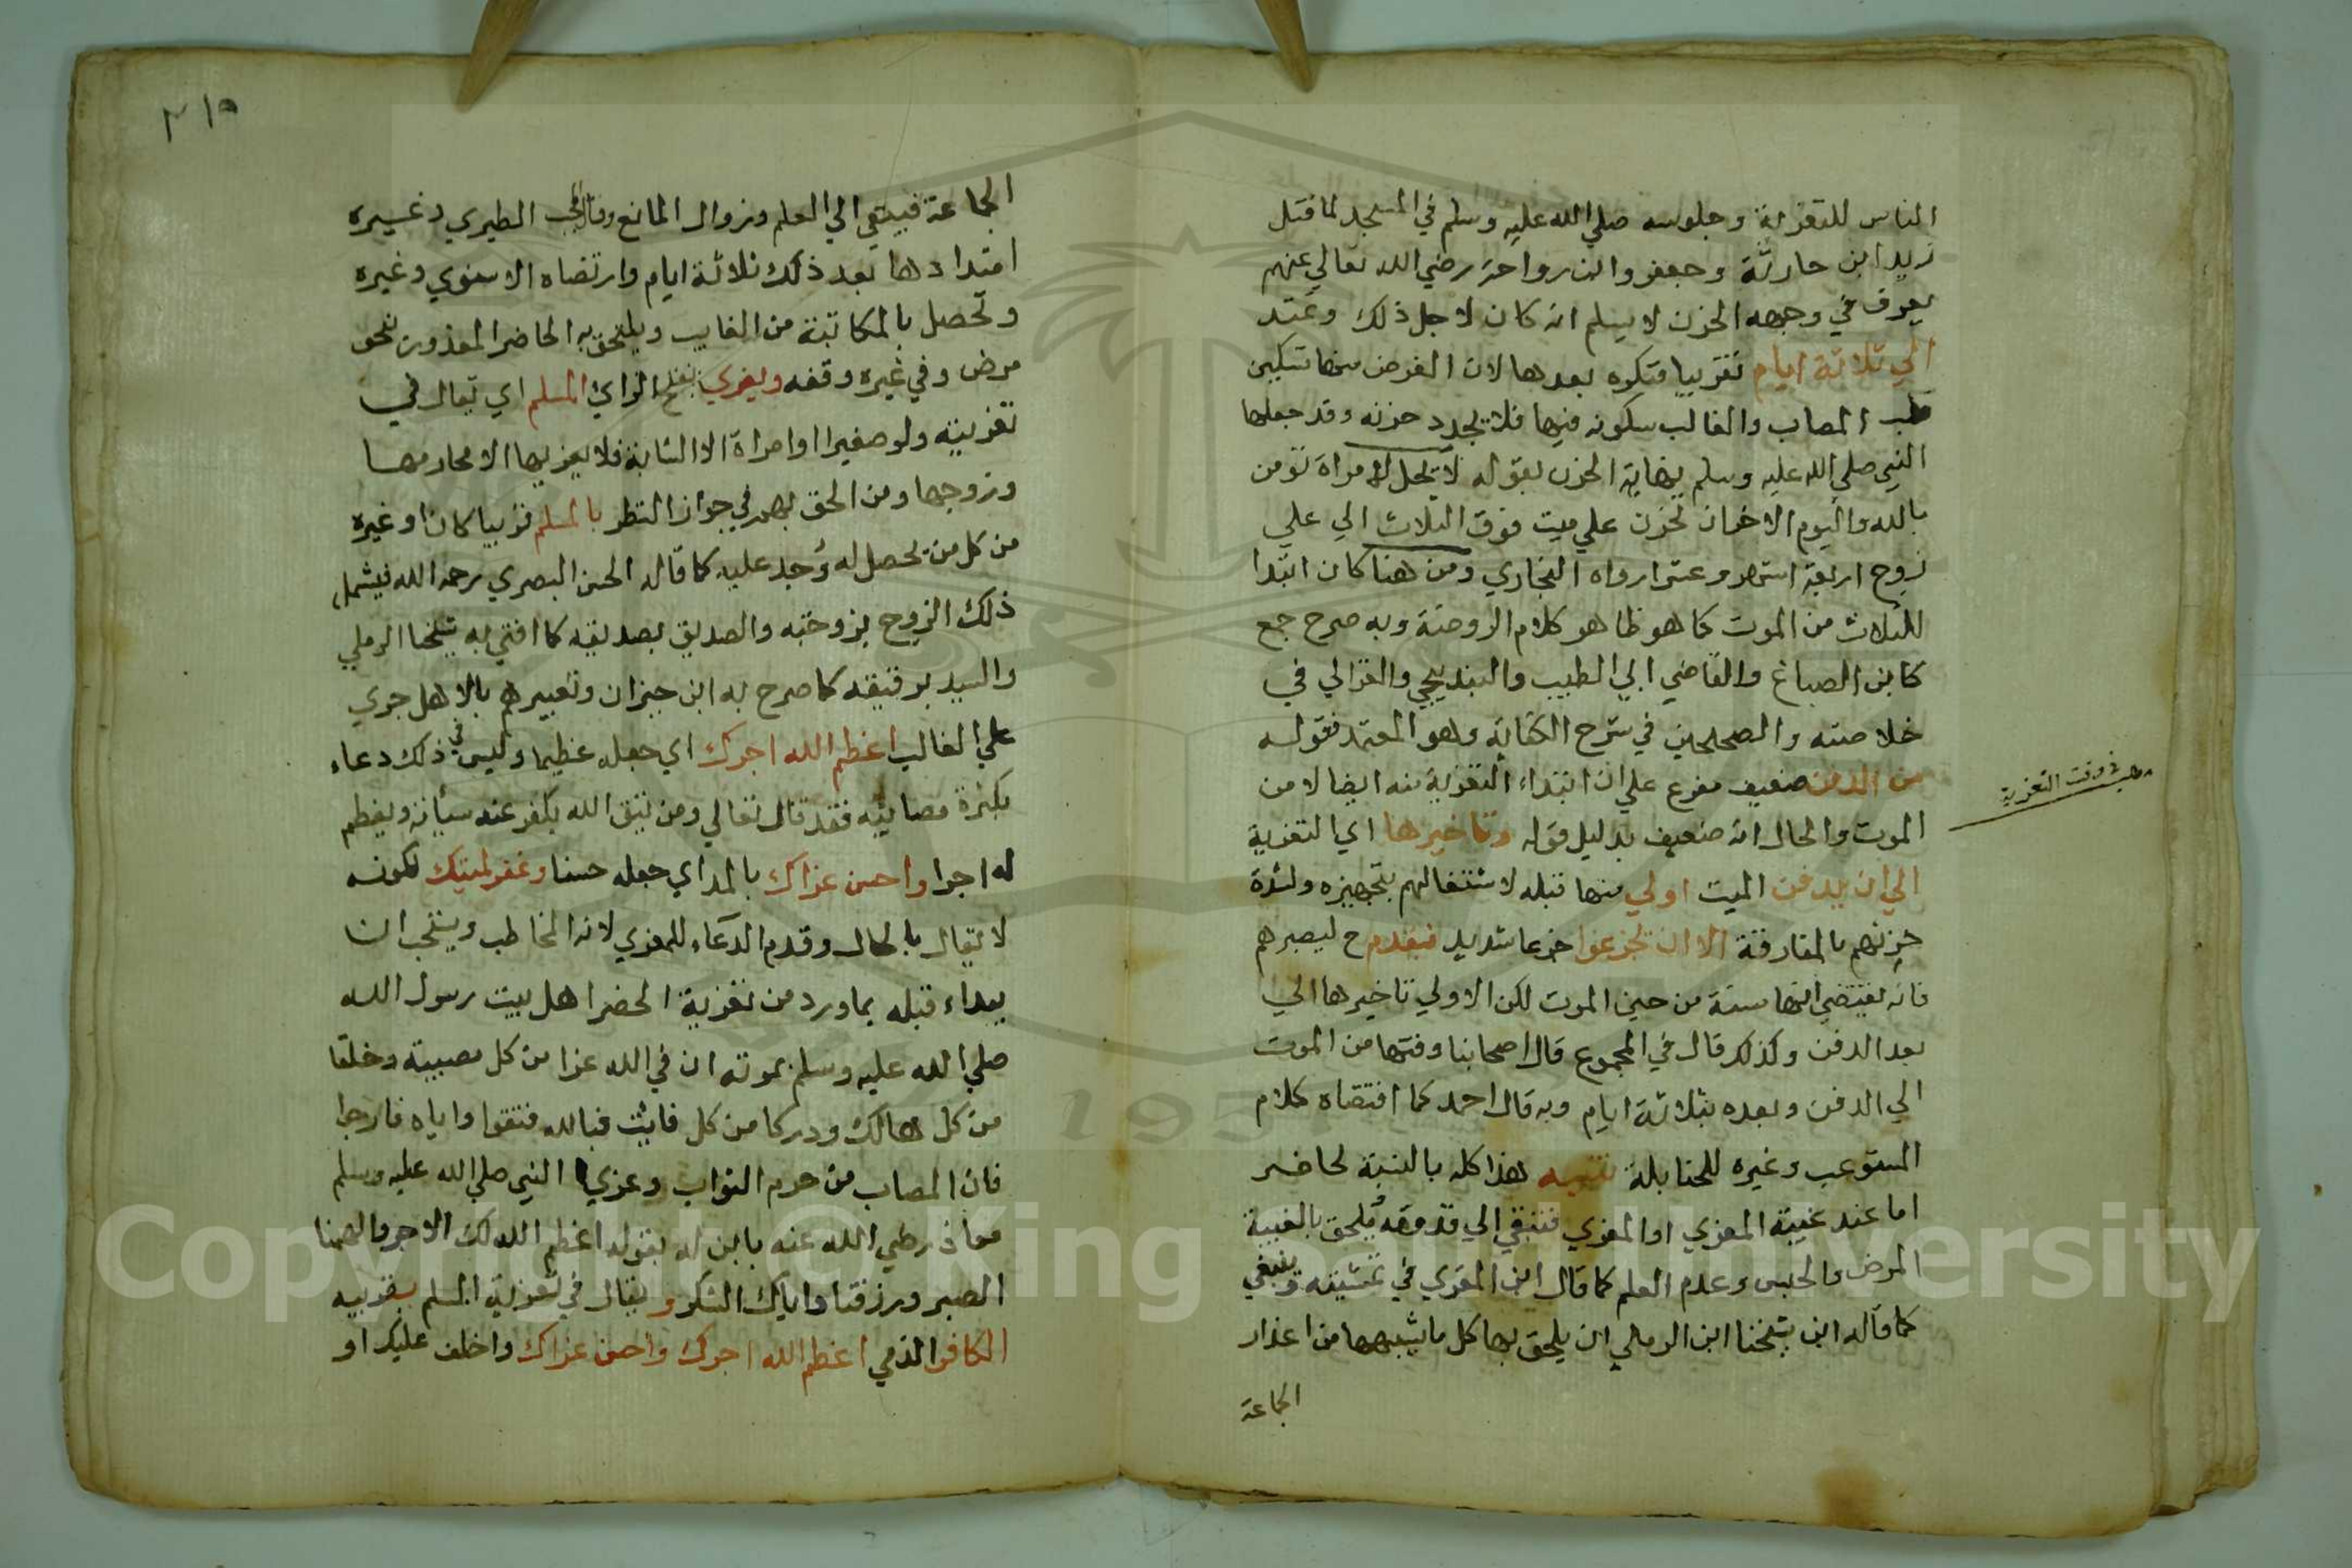 الناس للتعزية وجلوسه صلي الله عليه وسلم في المسجد لما قتل
زيد ابن حارثة وجعفر وابن رواحة رضي الله تعالي عنهم
يعرف في وجهه الحزن لا يسلم انه كان لاجل ذلك وتمتد
الي ثلاثة ايام تقريبا فتكره بعدها لان الغرض منها تسكين
قلب المصاب والغالب سكونه فيها فلا يجدد حزنه وقد جعلها
النبي صلي الله عليه وسلم نهاية الحزن بقوله لا يحل لامراة تومن
بالله واليوم الاخر ان تحزن علي ميت فوق الثلاث الي علي
زوج اربعة اشهر وعشرا رواه البخاري ومن هنا كان ابتدا
للثلاث من الموت كما هو ظاهر كلام الروضة وبه صرح جمع
كابن الصباغ والقاضي ابي الطيب والبندنيجي والغزالي في
خلاصته والصحلحين في شرح الكفاية وهو المعتمد فقوله
من الدفن ضعيف مفرع علي ان ابتداء التعزية منه ايضا لا من
الموت والحال انه ضعيف بدليل قوله وتاخيرها اي التعزية
الي ان يدفن الميت اولي منها قبله لاشتغالهم بتجهيزه ولشدة
حزنهم بالمفارقة الا ان تجزعوا جزعا شديد فيقدم ح ليصبرهم
فانه يقتضي انها سنة من حين الموت لكن الاولي تاخيرها الي
بعد الدفن وكذلك قال في المجموع قال اصحابنا وقتها من الموت
الي الدفن وبعده بثلاثة ايام وبه قال احمد كما اقتضاه كلام
المستوعب وغيره للحنابلة تنبيه هذا كله بالنسبة لحاضر
اما عند غيبة المعزي او المعزي فتبقي الي قدومه ويلحق بالغيبة
المرض والحبس وعدم العلم كما قال ابن المقري في تمشيته وينبغي
كما قاله ابن شيخنا ابن الرملي ان يلحق بها كل ما يشبهها من اعذار
الجماعة
مطلب في وقت التعزية
٢١٥
الجماعة فيبقي الي العلم وزوال المانع وقال المحب الطبري وغيره
امتدادها بعد ذلك ثلاثة ايام وارتضاه الاسنوي وغيره
وتحصل بالمكاتبة من الغايب ويلتحق به الحاضر المعذور بنحو
مرض وفي غيره وقفه ويعزي بفتح الزاي المسلم اي يقال في
تعزيته ولو صغيرا او امراة الا الشابة فلا يعزيها الا محارمها
وزوجها ومن الحق بهم في جواز النظر بالمسلم قريبا كان او غيره
من كل من يحصل له وُجد عليه كما قاله الحسن البصري رحمه الله فيشمل
ذلك الزوج بزوجته والصديق بصديقه كما افتي به شيخنا الرملي
والسيد برقيقه كما صرح به ابن خيران وتعبيرهم بالاهل جري
علي الغالب اعظم الله اجرك اي جعله عظيما وليس في ذلك دعاء
بكثرة مصائبه فقد قال تعالي ومن يتق الله يكفر عنه سيأته ويعظم
له اجرا واحسن عزاك بالمد اي جعله حسنا وغفر لميتك لكونه
لا يقال بالحال وقدم الدعاء للمعزي لانه المخاطب ويستحب ان
يبداء قبله بما ورد من تعزية الخضر اهل بيت رسول الله
صلي الله عليه وسلم بموته ان في الله عزا من كل مصيبة وخلفا
من كل هالك ودركا من كل فائت فبالله فتقوا واياه فارجوا
فان المصاب من حرم الثواب وعزي النبي صلي الله عليه وسلم
معاذ رضي الله عنه بابن له بقوله اعظم الله لك الاجر والهمنا
الصبر ورزقنا واياك الشكر ويقال في تعزية المسلم بقريبه
الكافر الذمي اعظم الله اجرك واحسن عزاك واخلف عليك او
Copyright © King Saud University